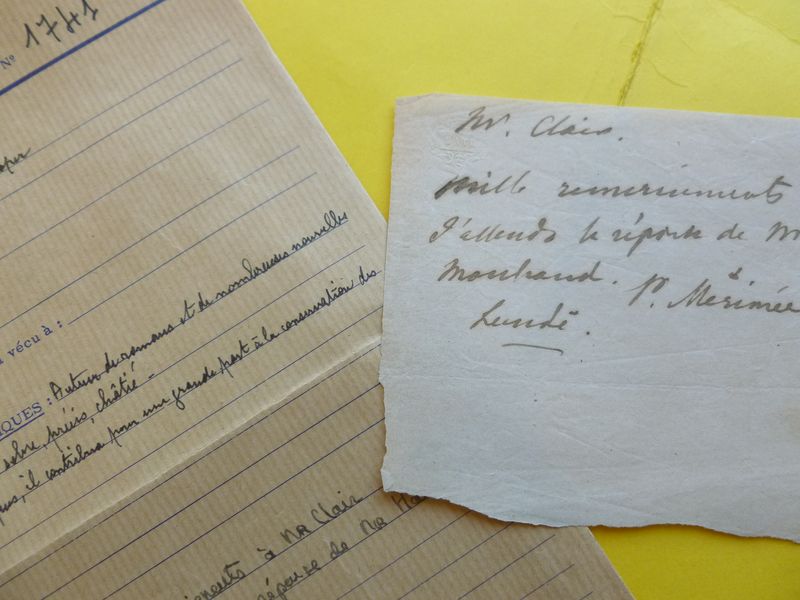 N° 1741
vécu à :
IQUES : Auteur de romans et de nombreuses nouvelles
sobre, précis, châtié -
il contribua pour une grande part à la conservation des
à Mr Clair
réponse de Mr
Mr. Clair.
Mille remerciements
J'attends la réponse de M
P. Mérimée
Lundi.